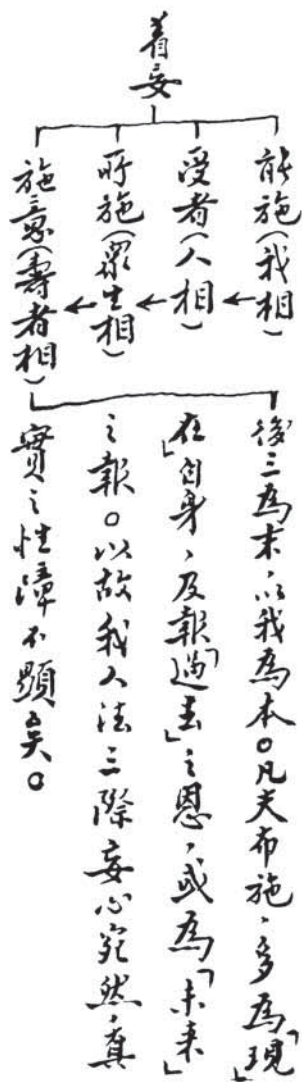 着妄
能施(我相)
受者(人相)
所施(眾生相)
施意(壽者相)
後三為末,以我為本。凡夫布施,多為「現
在」自身,及報「過去」之恩,或為「未來」
之報。以故我人法三際妄心宛然,真
實之性障不顯矣。